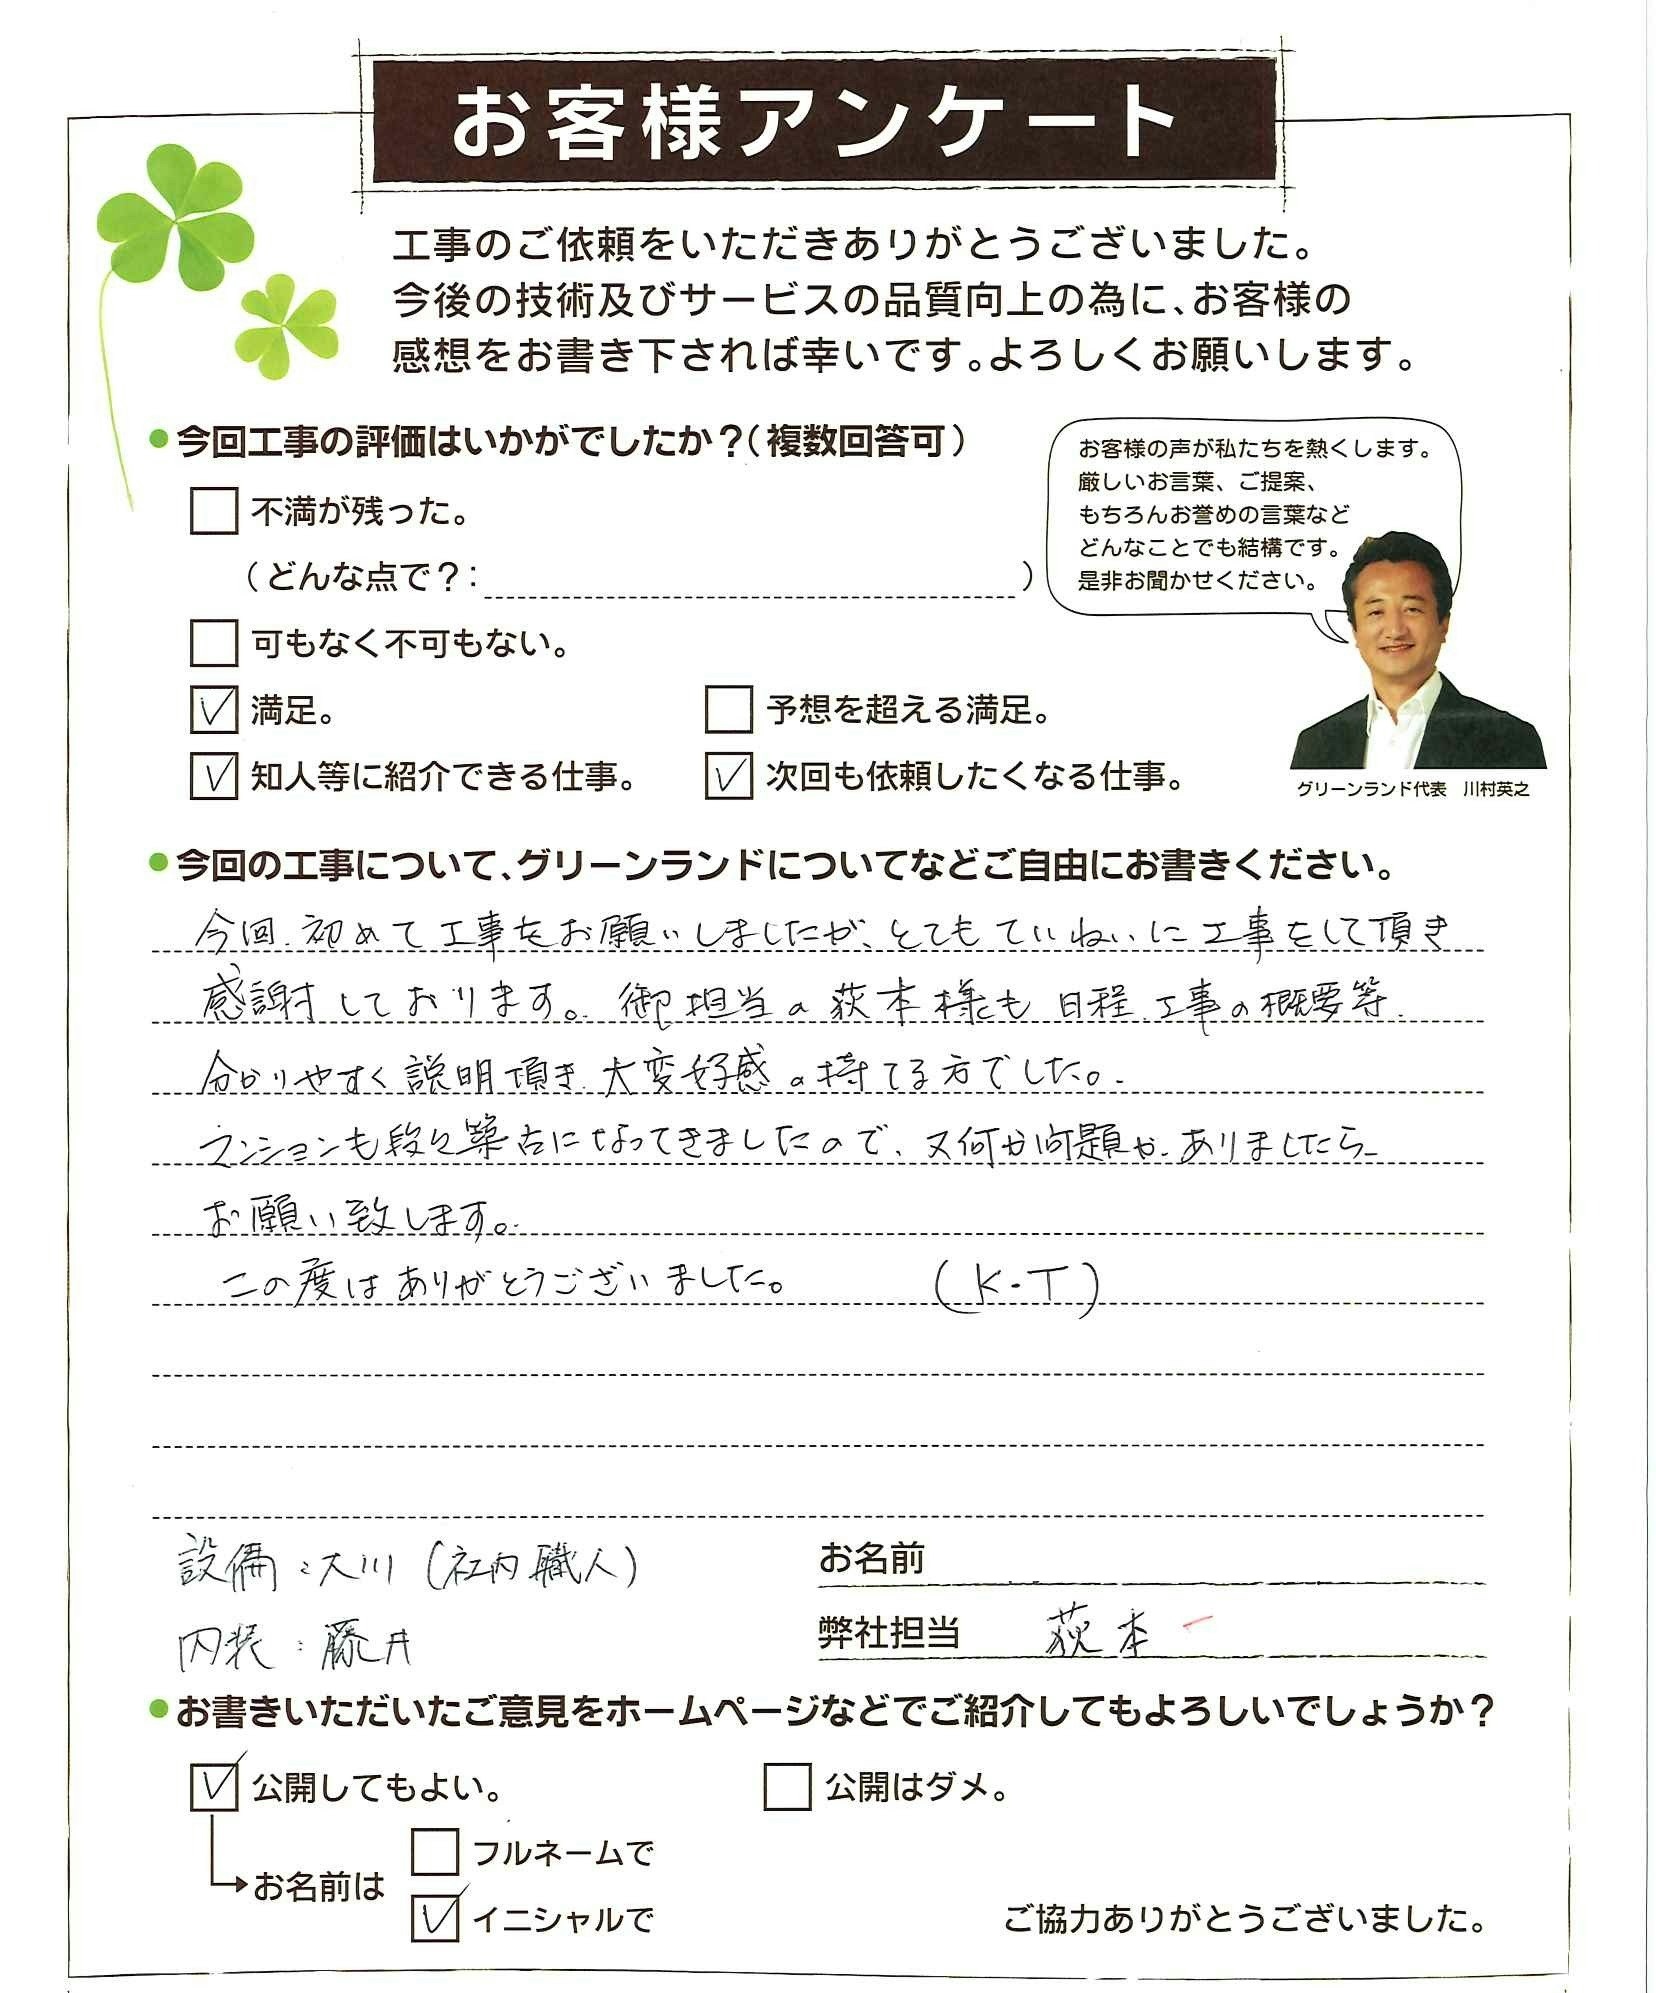 お客様アンケート
工事のご依頼をいただきありがとうございました。
今後の技術及びサービスの品質向上の為に、お客様の
感想をお書き下されば幸いです。よろしくお願いします。
●今回工事の評価はいかがでしたか？（複数回答可）
お客様の声が私たちを熱くします。
厳しいお言葉、ご提案、
もちろんお誉めの言葉など
どんなことでも結構です。
是非お聞かせください。
グリーンランド代表　川村英之
不満が残った。
（どんな点で？：　）
可もなく不可もない。
満足。　予想を超える満足。
知人等に紹介できる仕事。　次回も依頼したくなる仕事。
●今回の工事について、グリーンランドについてなどご自由にお書きください。
今回、初めて工事をお願いしましたが、とてもていねいに工事をして頂き
感謝しております。御担当の荻本様も日程、工事の概要等
分かりやすく説明頂き、大変好感の持てる方でした。
マンションも段々築古になってきましたので、又何か問題が、ありましたら
お願い致します。
この度はありがとうございました。　（K・T）
設備：大川（社内職人）
内装：藤井
お名前
弊社担当　荻本
●お書きいただいたご意見をホームページなどでご紹介してもよろしいでしょうか？
公開してもよい。　公開はダメ。
お名前は
フルネームで
イニシャルで
ご協力ありがとうございました。